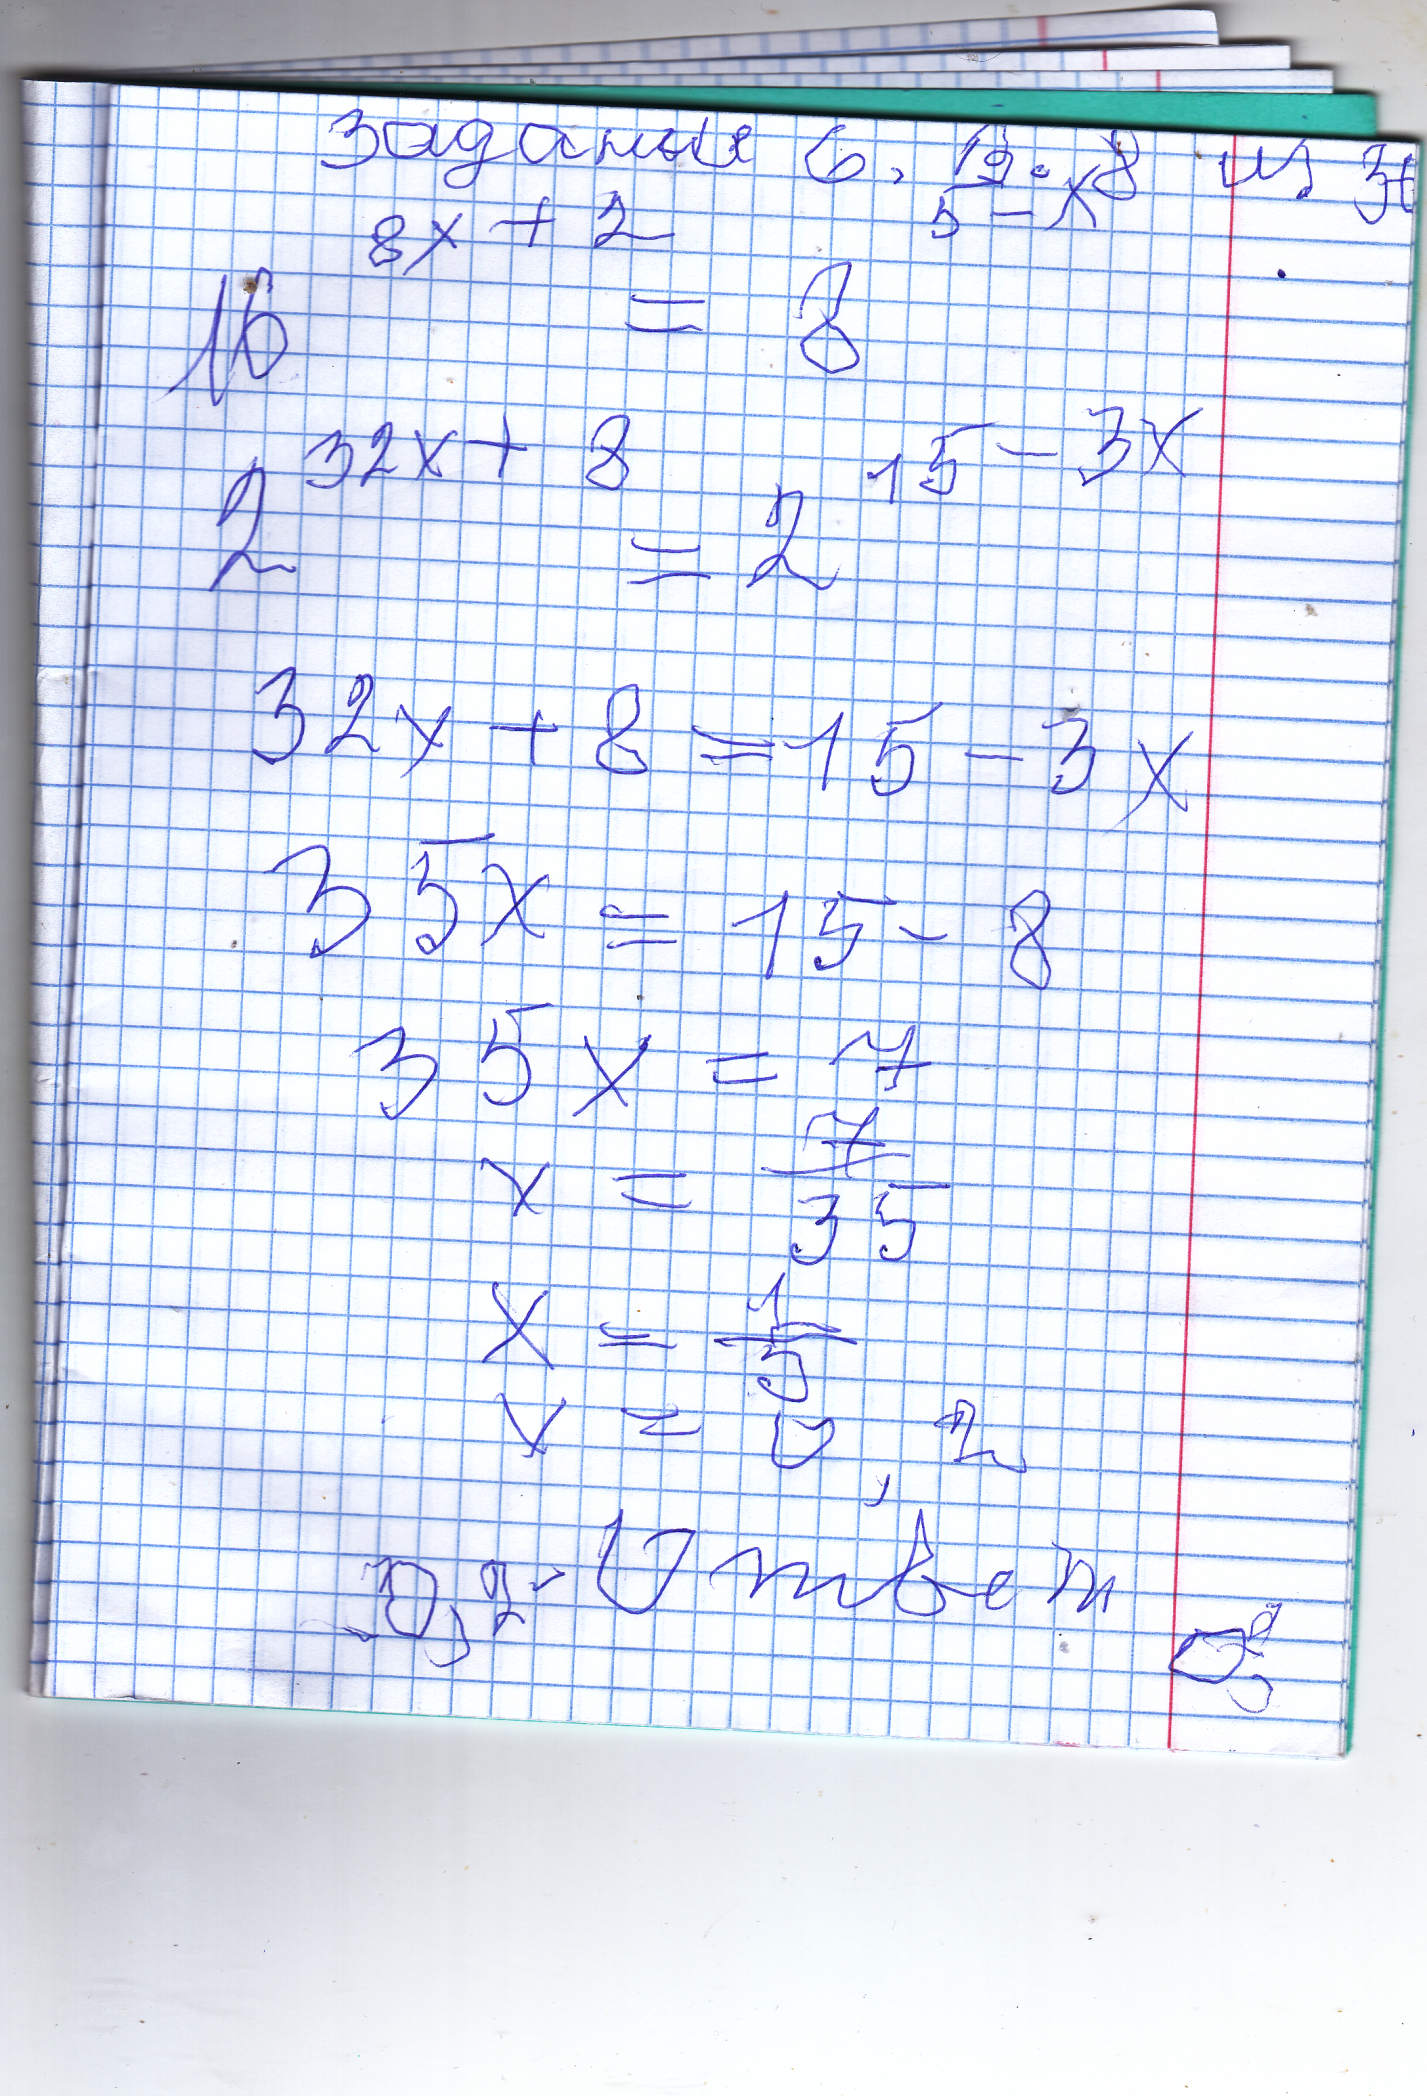 Задания 6. 19.8 из
16^{8x + 2} = 8^{5 - x}
2^{32x + 8} = 2^{15 - 3x}
32x + 8 = 15 - 3x
35x = 15 - 8
35x = 7
x = \frac{7}{35}
x = \frac{1}{5}
x = 0,2
0,2 - Ответ